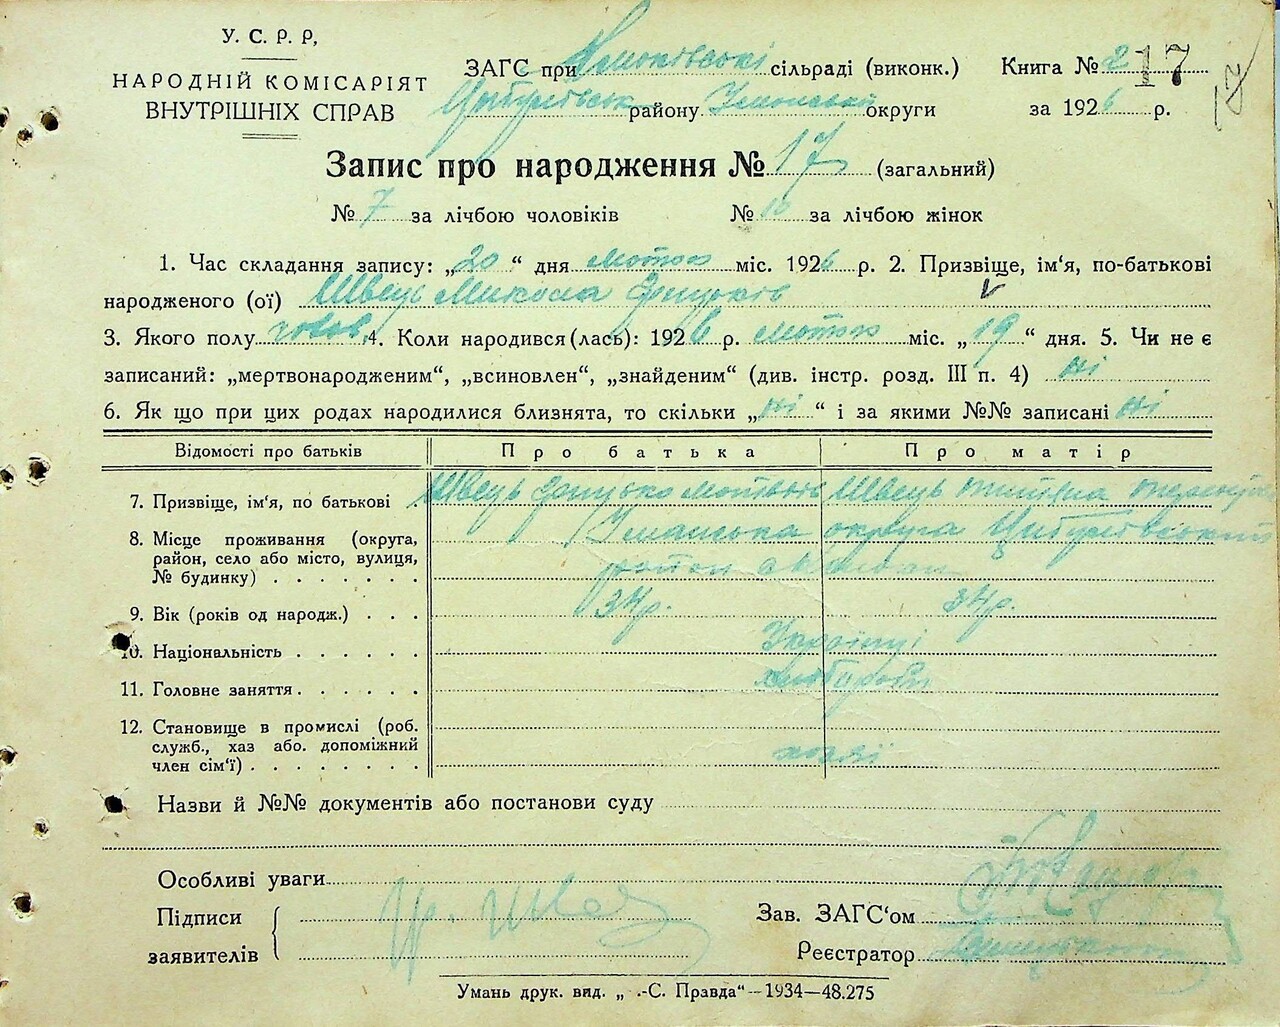 У. С. Р. Р,
НАРОДНІЙ КОМІСАРІЯТ
ВНУТРІШНІХ СПРАВ
ЗАГС при сільраді (виконк.) Книга № 2 17
17
району Уманської округи за 1926 р.
Запис про народження № 17 (загальний)
№ 7 за лічбою чоловіків № 10 за лічбою жінок
1. Час складання запису: „20“ дня лютого міс. 1926 р. 2. Призвіще, ім‘я, по-батькові
народженого (ої) Швець Микола Грицьків
3. Якого полу чолов. 4. Коли народився (лась): 1926 р. лютого міс. „19“ дня. 5. Чи не є
записаний: „мертвонародженим“, „всиновлен“, „знайденим“ (див. інстр. розд. III п. 4) ні
6. Як що при цих родах народилися близнята, то скільки „ні“ і за якими №№ записані ні
Відомості про батьків Про батька Про матір
7. Призвіще, ім‘я, по батькові Швець Грицько Швець
8. Місце проживання (округа, район, село або місто, вулиця, № будинку) Уманська округа Цибулівський
район
9. Вік (років од народж.) 34р. 34р.
10. Національність Українці
11. Головне заняття хлібороби
12. Становище в промислі (роб. служб., хаз або. допоміжний член сім‘ї)
Назви й №№ документів або постанови суду
Особливі уваги
Підписи заявителів Гр. Швець
Зав. ЗАГС‘ом
Реєстратор
Умань друк. вид. „ .-С. Правда“—1934—48.275